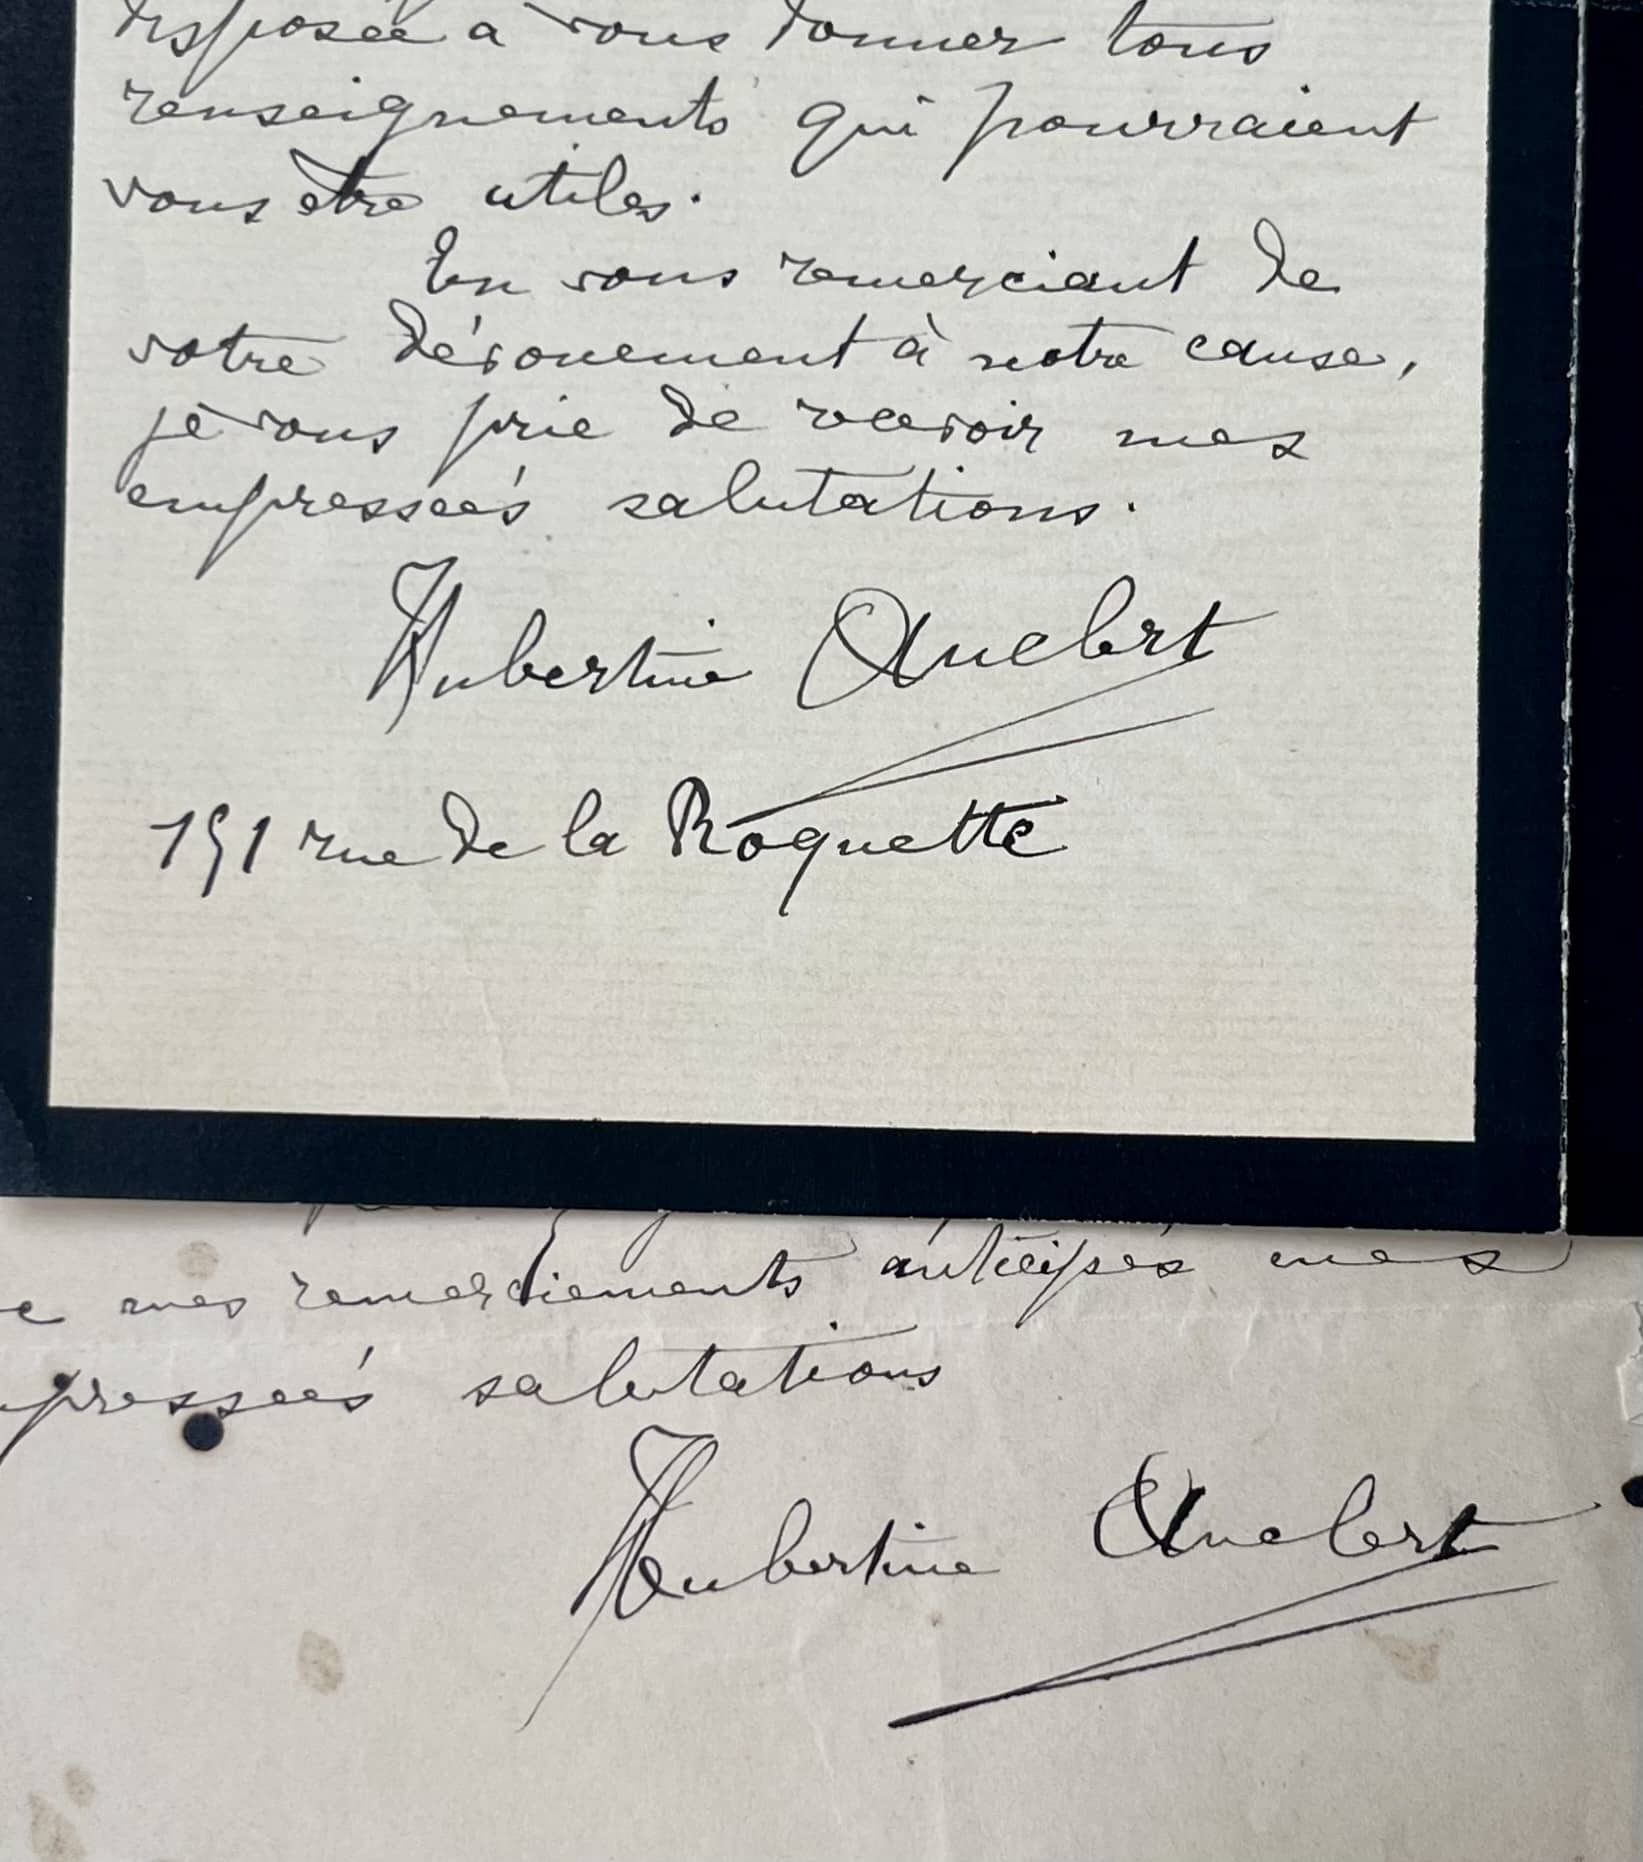 disposée à vous donner tous
renseignements qui pourraient
vous être utiles.
En vous remerciant de
votre dévouement à notre cause,
je vous prie de recevoir mes
empresseés salutations.
Hubertine Auclert
151 rue de la Roquette
mes remerciements anticipés mes
presseés salutations
Hubertine Auclert